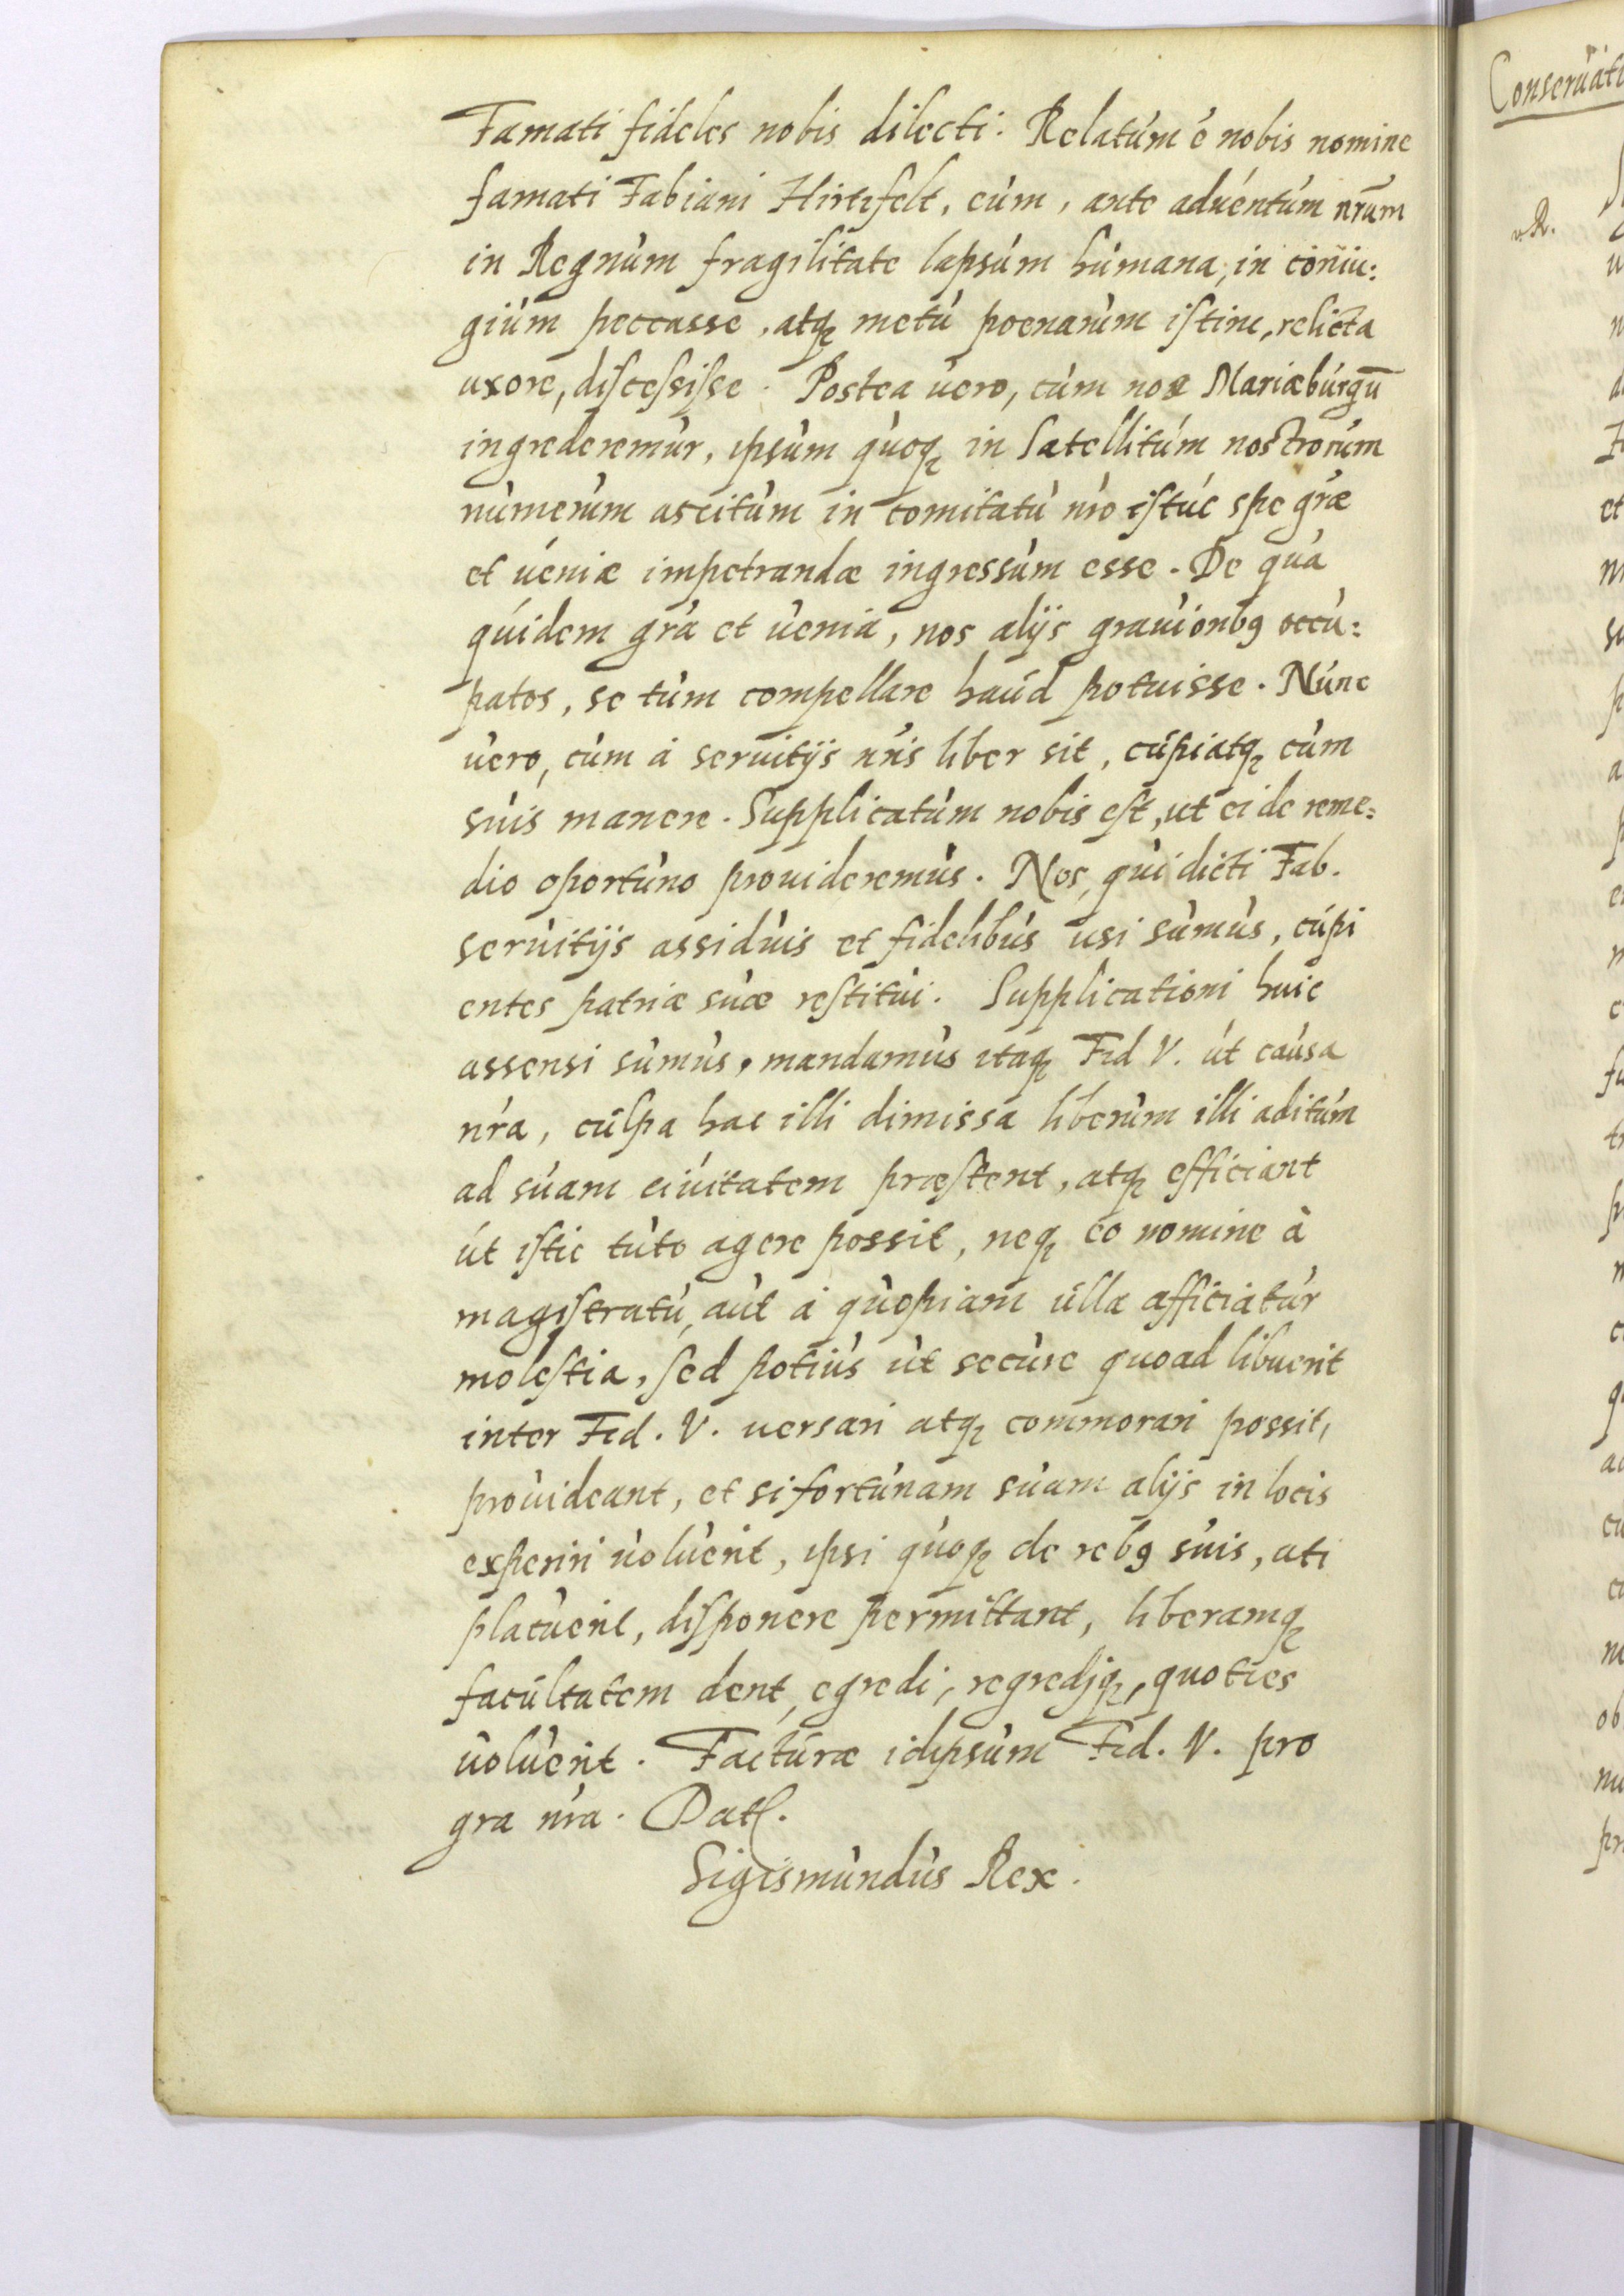 Famati fideles nobis dilecti. Relatum é nobis nomine
famati Fabiani Hirtzfelt, cum, ante aduentum nr̃um
in Regnum fragilitate lapsum humana, in coniu:
gium peccasse, atq; metu poenarum istinc, relicta
uxore, discessisse. Postea uero, cum nos Mariæburgū
ingrederemur, ipsum quoq; in Satellitum nostrorum
numerum ascitum in comitatu nr̃o istuc spe gr̃æ
et ueniæ impetrandæ ingressum esse. De qua
quidem gr̃a et uenia, nos alijs grauiorib9 occu:
patos, se tum compellare haud potuisse. Nunc
uero, cum à seruitijs nr̃is liber sit, cupiatq; cum
suis manere. Supplicatum nobis est, ut ei de reme:
dio oportuno prouideremus. Nos, qui dicti Fab.
seruitijs assiduis et fidelibus usi sumus, cupi
entes patriæ suæ restitui. Supplicationi huic
assensi sumus, mandamus itaq; Fid V. ut causa
nr̃a, culpa hac illi dimissa liberum illi aditum
ad suam ciuitatem præstent, atq; efficiant
ut istic tuto agere possit, neq; eo nomine à
magistratu, aut à quopiam ulla afficiatur
molestia, sed potius ut secure quoad libuerit
inter Fid. V. uersari atq; commorari possit,
prouideant, et si fortunam suam alijs in locis
experiri uoluerit, ipsi quoq; de reb9 suis, uti
placuerit, disponere permittant, liberamq;
facultatem dent, egredi, regredjq;, quoties
uoluerit. Facturæ idipsum Fid. V. pro
gra nr̃a. Datl.
Sigismundus Rex.
Conseruati